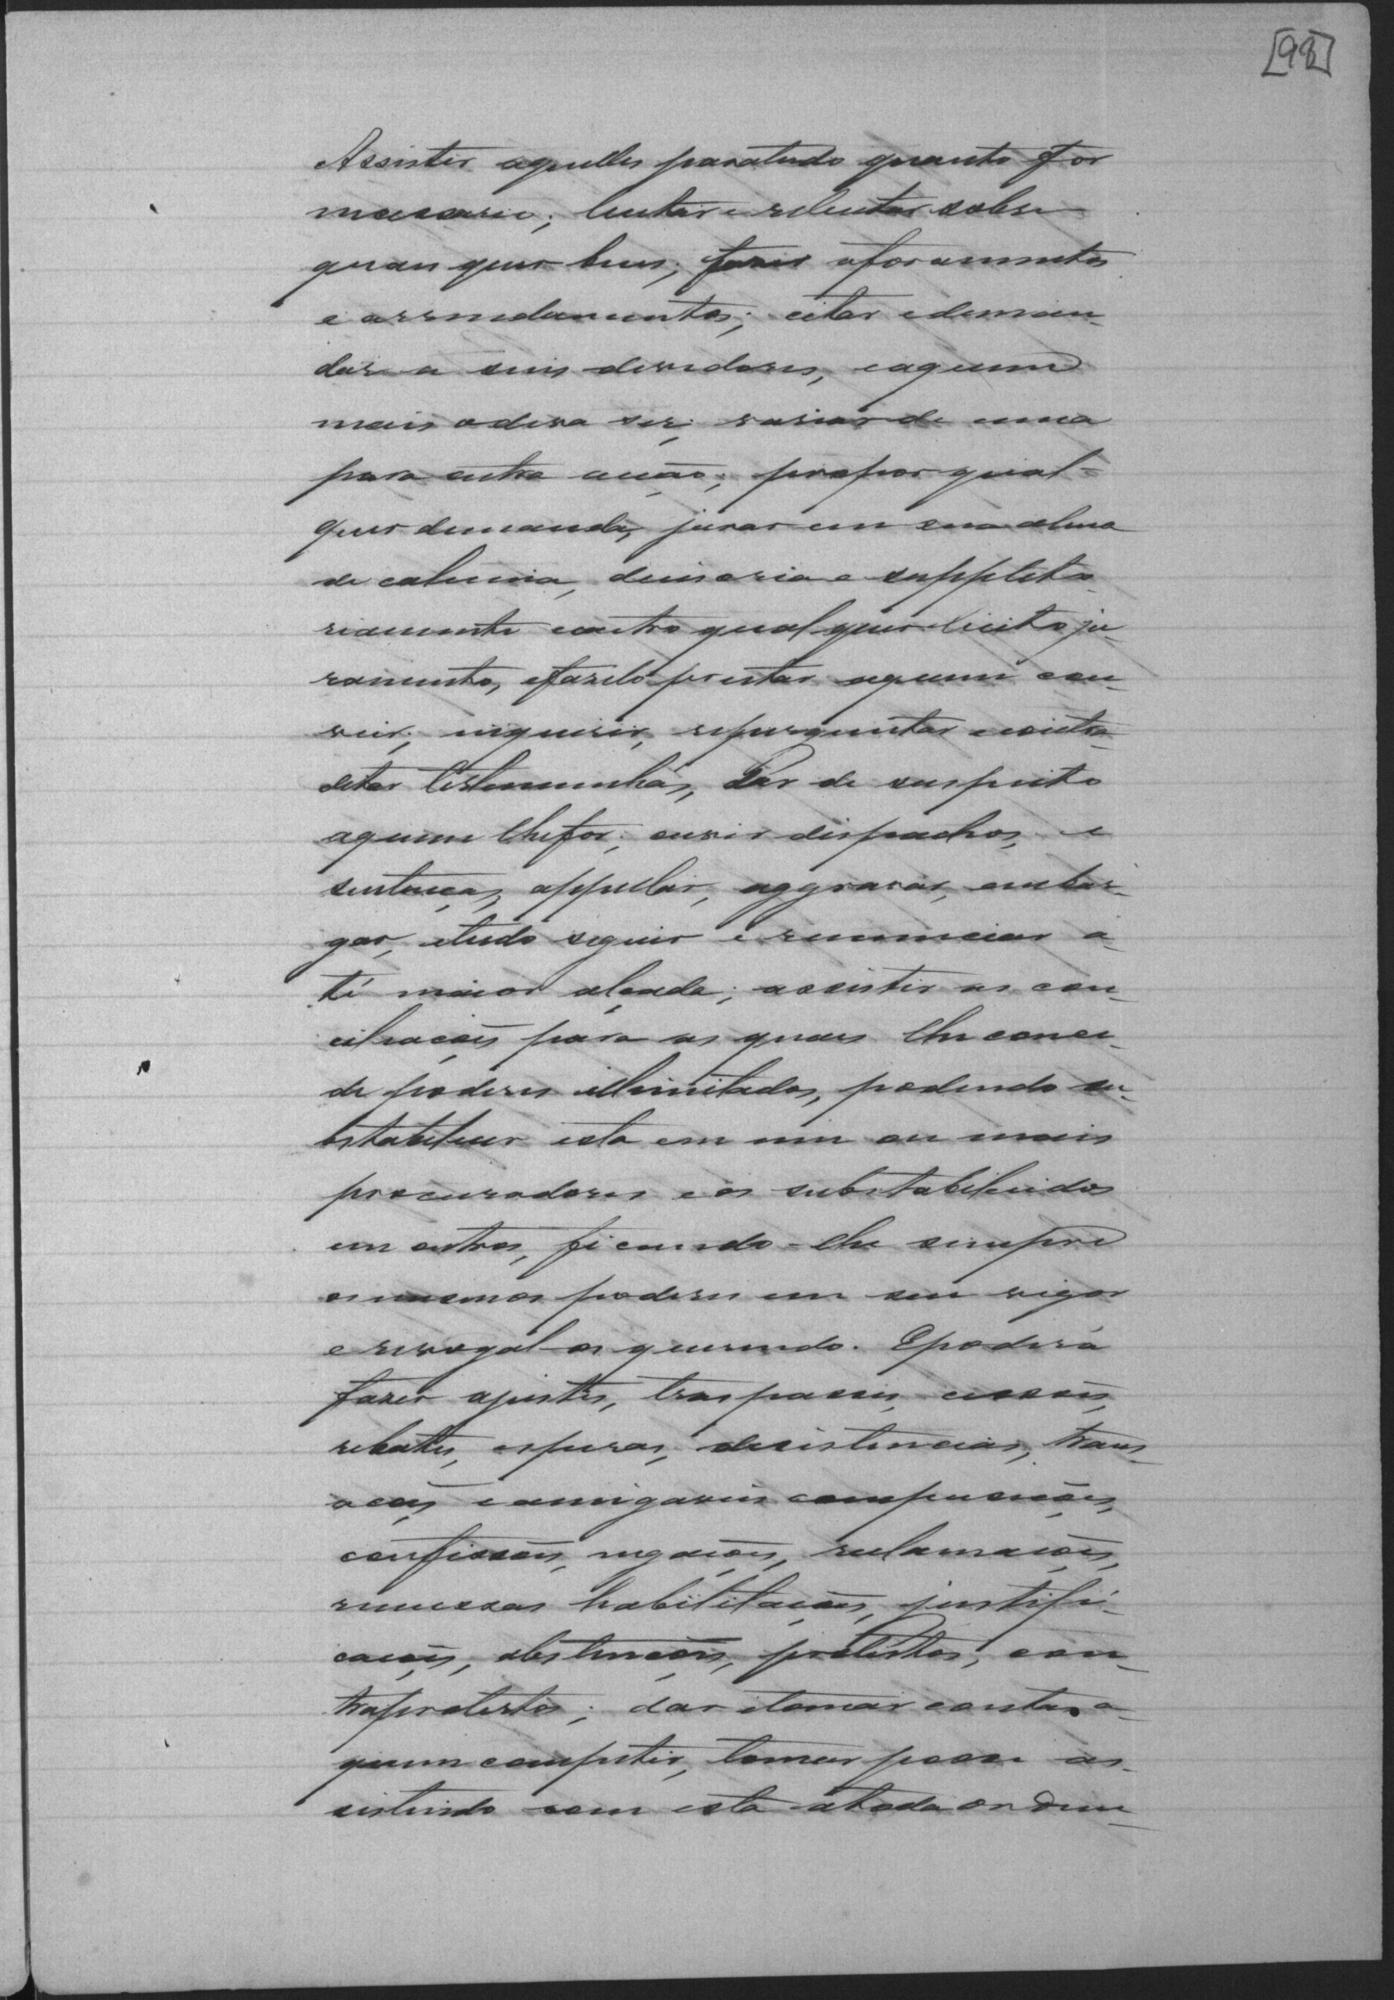 [98]
Assistir aquelles paratudo quanto for
necessario; lictar e relictar sobre
quaes quer bens; fazer aforamentos
e arrendamentos; citar e deman-
dar a seus devedores, e a quem
mais o deva ser; variar de uma
para outra acção; propor qual-
quer demanda, jurar em sua alma
de calumnia, decisoria e suppleto-
riamente e outro qual quer licito ju-
ramento, e fazelo prestar a quem con-
vier; inquerir, reperguntar e contra-
ditar testemunhas, Dar de suspeito
a quem lhe for; ouvir dispachos, e
sentenças, appellar, aggravar, embar-
gar, e tudo seguir e renunciar a-
té maior alçada; assistir as con-
ciliações para as quaes lhe conce-
de poderes illimitados, podendo su-
bstabelecer esta em um ou mais
procuradores e os substabelecidos
em outros, ficando-lhe sempre
os mesmos poderes em seu vigor
e revogal os querendo. E poderá
fazer ajustes, traspasses, cessões,
rebates, esperas, desistencias, trans-
ações e amigaveis composições,
confissões, negações, reclamações,
remessas habilitações, justifi-
cações, abstenções, protestos, con-
traprotestos; dar e tomar contas a
quem competir, tomar posse as-
sistindo com esta a toda ordem